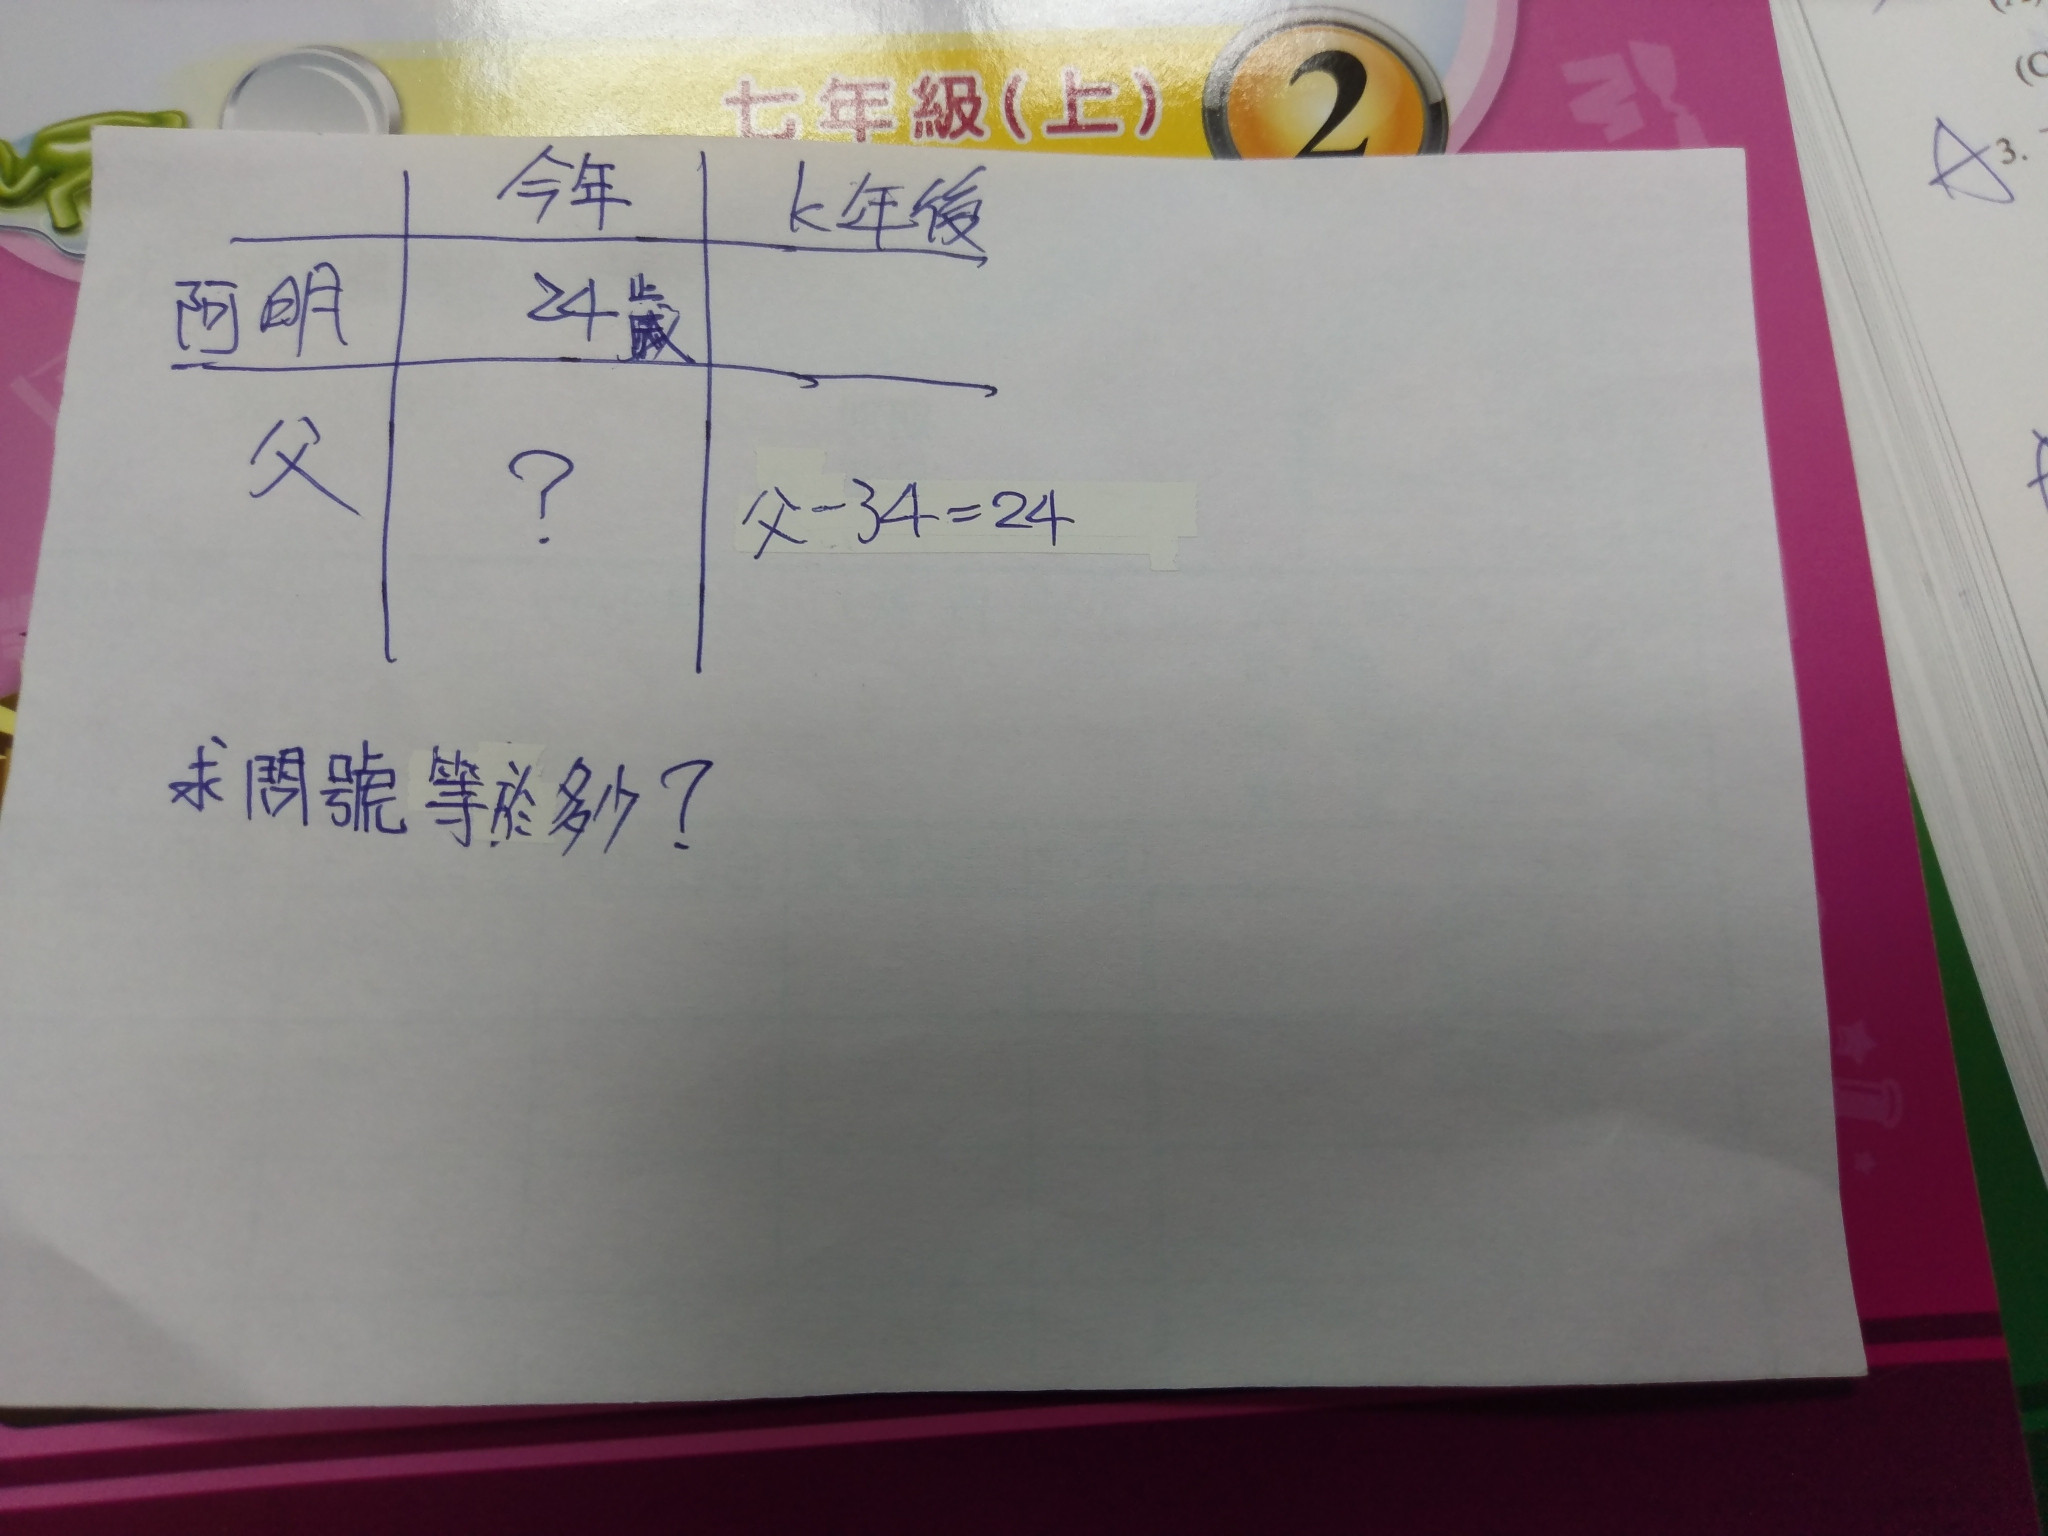 七年級(上) 2
今年 k年後
阿明 24歲
父 ? 父-34=24
求問號等於多少?
3.